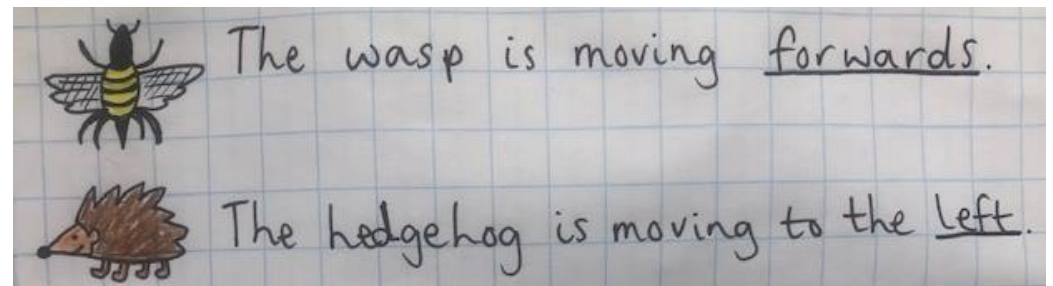 The wasp is moving forwards.
The hedgehog is moving to the left.